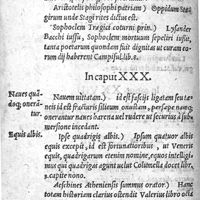 Aristotelis philosophi patriam) Oppidum Sta
girum unde Stagirites dictus est.
Sophoclem Tragici coturni prin.) Lysander
Bacchi iussu, Sophoclem mortuum sepeliri
tanta poetarum quondam fuit dignitas ut curam eo-
rum dij haberent Campisul. lib. 8.
In caput XXX.
Naues quã
doq; onerã-
tur.
Nauem uittatam.) id est fascijs ligatam seu tæ-
nijs id est staturis silicum onustam, persæpe naues
onerantur huiusmodi lapidibus ne ui uentorum
succedere incendant.
Equis albis.
Ipse quadrigis albis.) Ipsum quatuor albis
equis excepit, id est fortunatioribus, ut Veneris
equis, quadrigam etenim nomine, equos intelligi-
mus qui quadrigam agunt uelut Columella docet lib.
3. capite nono.
Aeschines Atheniensis summus orator) Hanc
totam historiam clarius ostendit Valerius libro octa